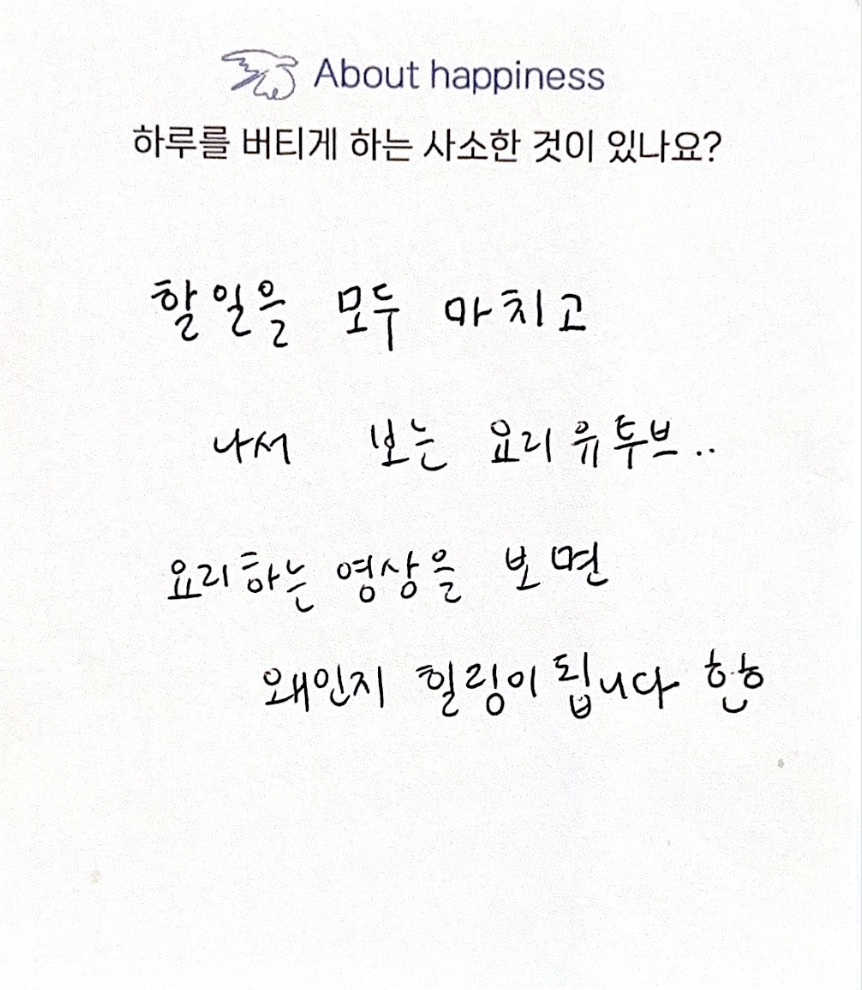 About happiness
하루를 버티게 하는 사소한 것이 있나요?
할일을 모두 마치고
나서 보는 요리유투브..
요리하는 영상을 보면
왜인지 힐링이 됩니다 ㅎㅎ